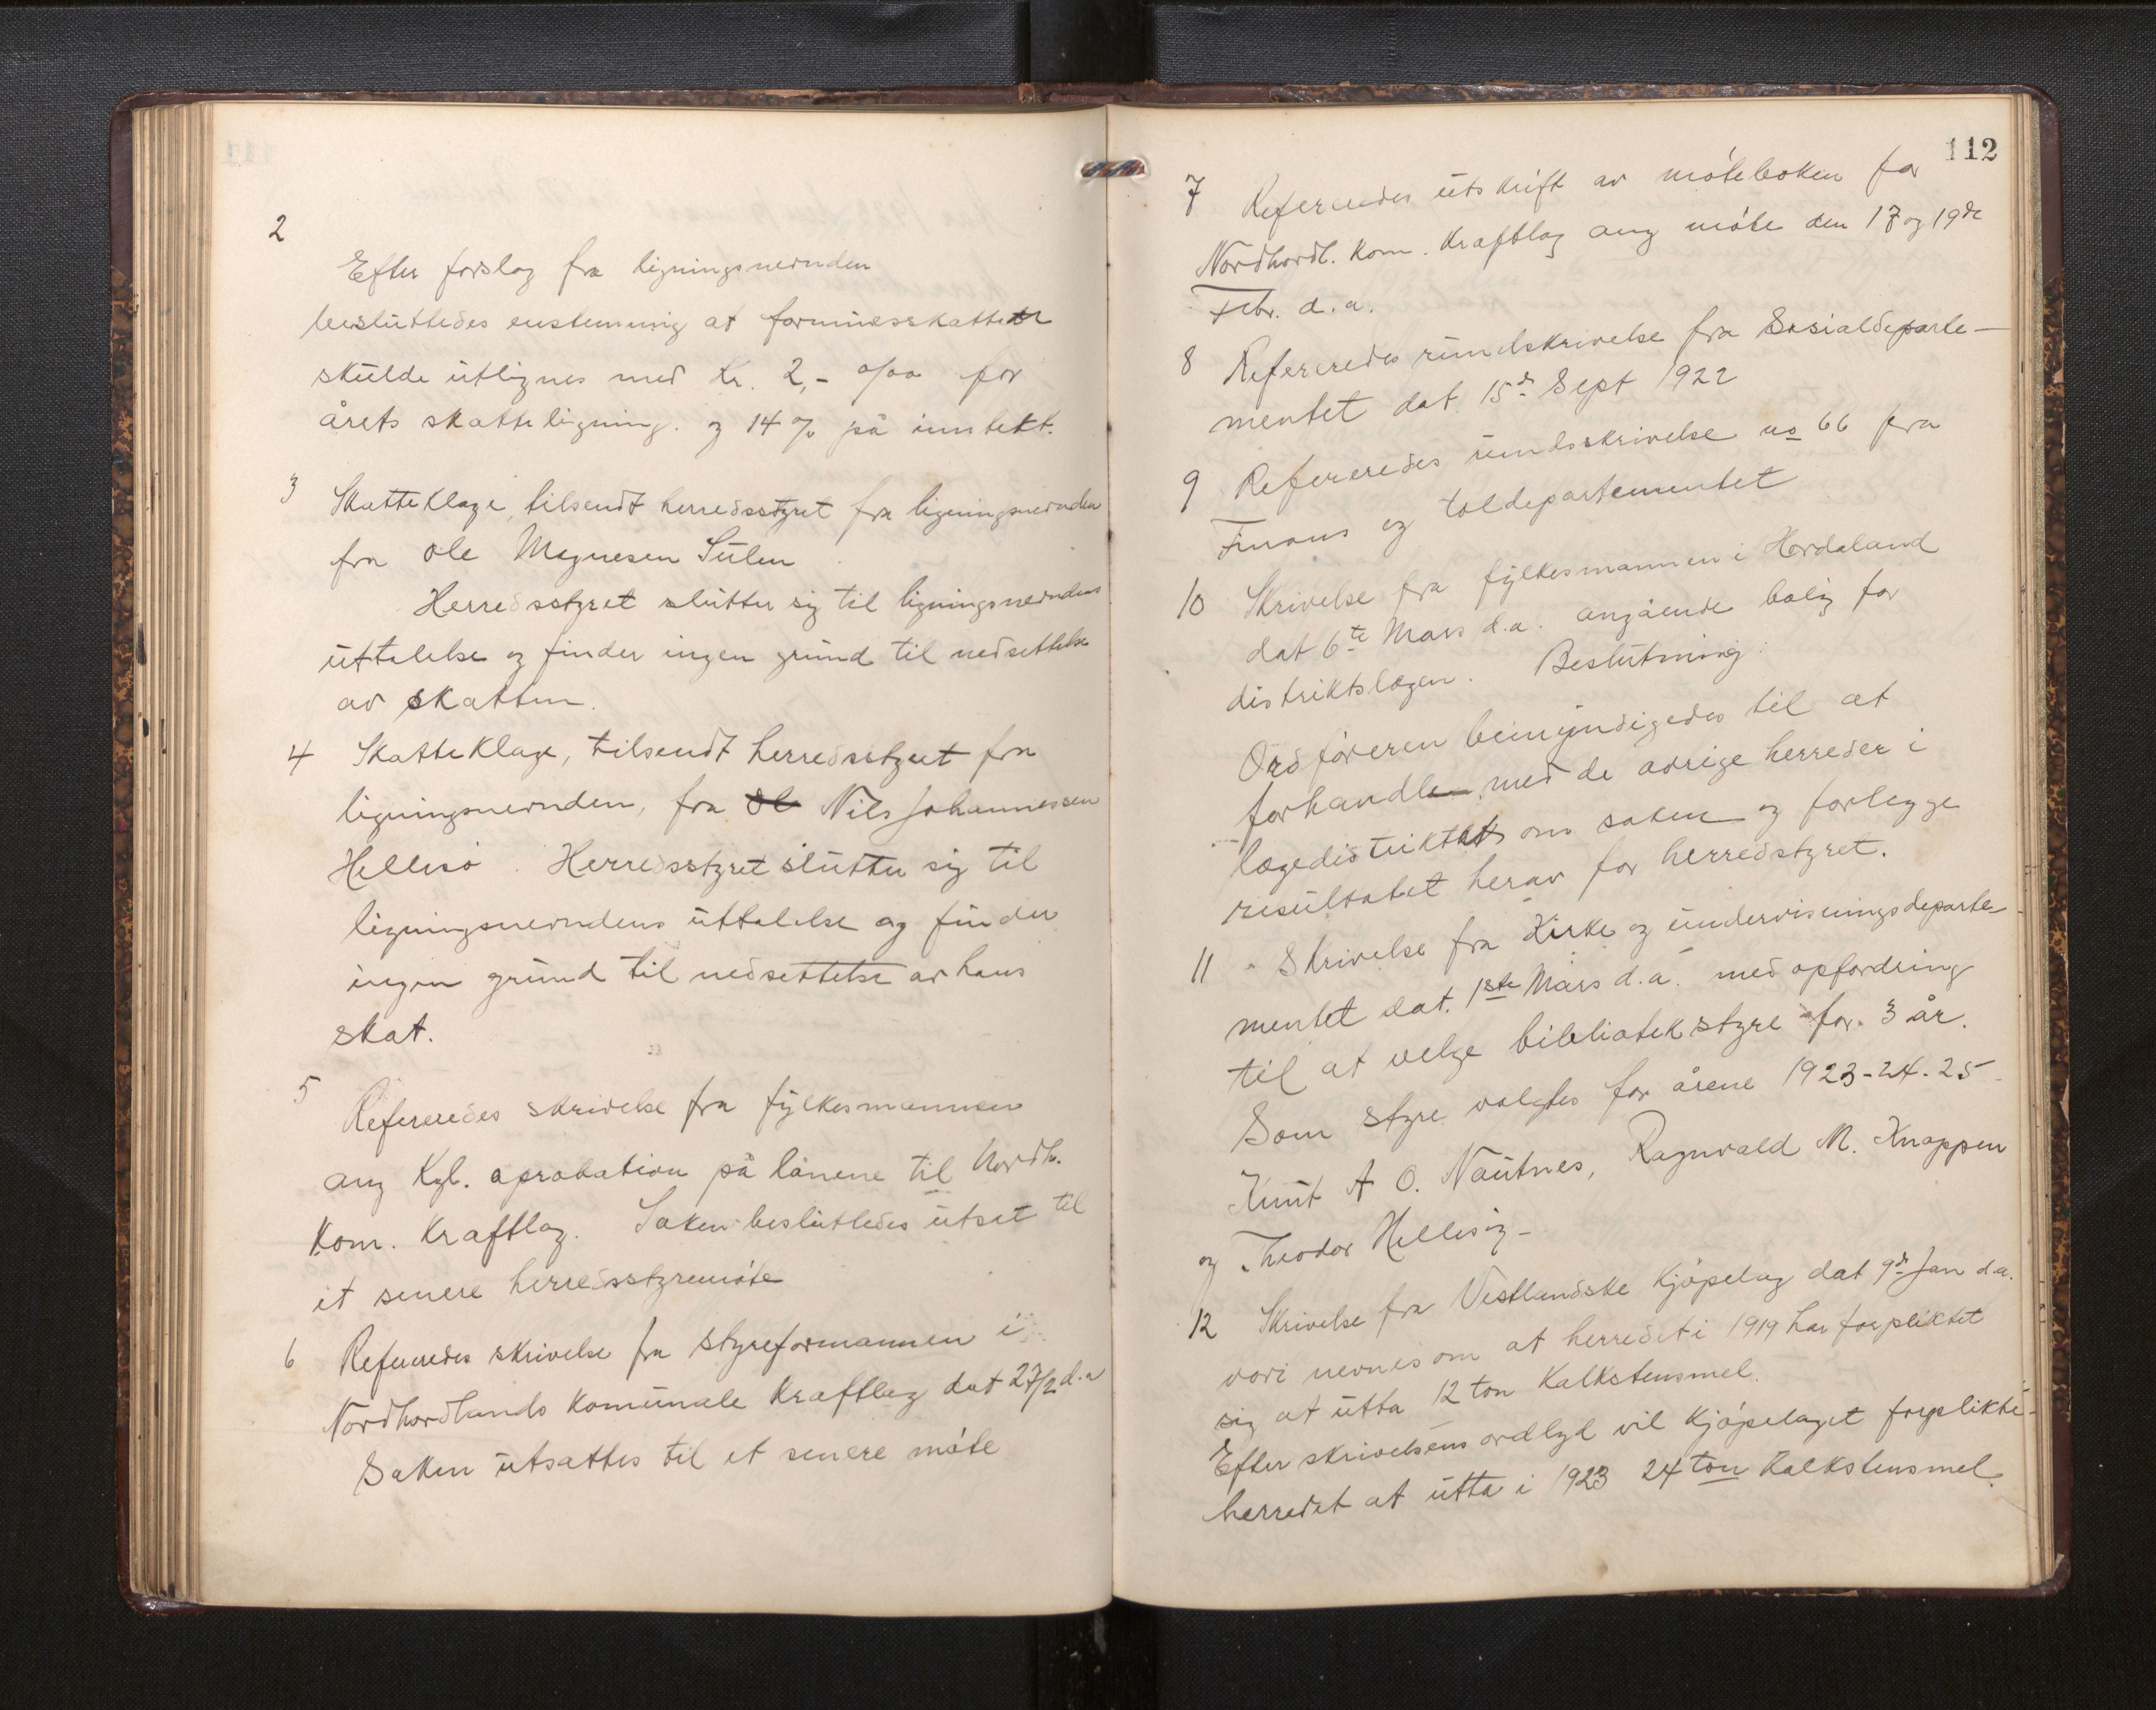 2
Efter forslag fra ligningsnevnden
besluttedes enstemmig at formuesskatten
skulde utlignes med Kr. 2,- o/oo for
årets skatteligning. og 14 % på inntekt.
3 Skatteklage, tilsendt herredsstyret fra ligningsnevnden
fra Ole Magnesen Sulen
Herredsstyret slutter sig til ligningsnevndens
uttalelse og finder ingen grund til nedsettelse
av skatten.
4 Skatteklage, tilsendt herredsstyret fra
ligningsnevnden, fra Nils Johannessen
Hellesö. Herredsstyret slutter sig til
ligningsnevndens uttalelse og finder
ingen grund til nedsettelse av hans
skat.
5 Refereredes skrivelse fra fylkesmannen
ang Kgl. aprobation på lånene til Nordh.
Kom. Kraftlag. Saken besluttedes utsat til
et senere herredsstyremöte
6 Refereredes skrivelse fra styreformannen i
Nordhordlands Komunale Kraftlag dat 27/2 d.a
Saken utsattes til et senere möte
112
7 Refereredes utskrift av möteboken for
Nordhordl. Kom. Kraftlag ang möte den 17 og 19de
Febr. d.a.
8 Refereredes rundskrivelse fra Sosialdeparte-
mentet dat. 15de Sept 1922
9 Refereredes rundsskrivelse no 66 fra
Finans og toldepartementet
10 Skrivelse fra fylkesmannen i Hordaland
dat 6te Mars d.a. angående bolig for
distriktslægen. Beslutning:
Ordföreren bemyndigedes til at
forhandle med de övrige herreder i
lægedistriktet om saken og forlegge
resultatet herav for herredstyret.
11 Skrivelse fra Kirke og undervisningsdeparte-
mentet dat. 1ste Mars d.a. med opfordring
til at velge bibliotekstyre for 3 år.
Som styre valgtes for årene 1923-24-25
Knut A O. Nautnes, Ragnvald M. Knappen
og Theodor Hellesöy-
12 Skrivelse fra Vestlandske Kjöpelag dat 9de Jan d.a.
vori nevnes om at herredet i 1919 har forpliktet
sig at utta 12 ton Kalkstensmel.
Efter skrivelsens ordlyd vil Kjöpelaget forplikte
herredet at utta i 1923 24 ton Kalkstensmel.